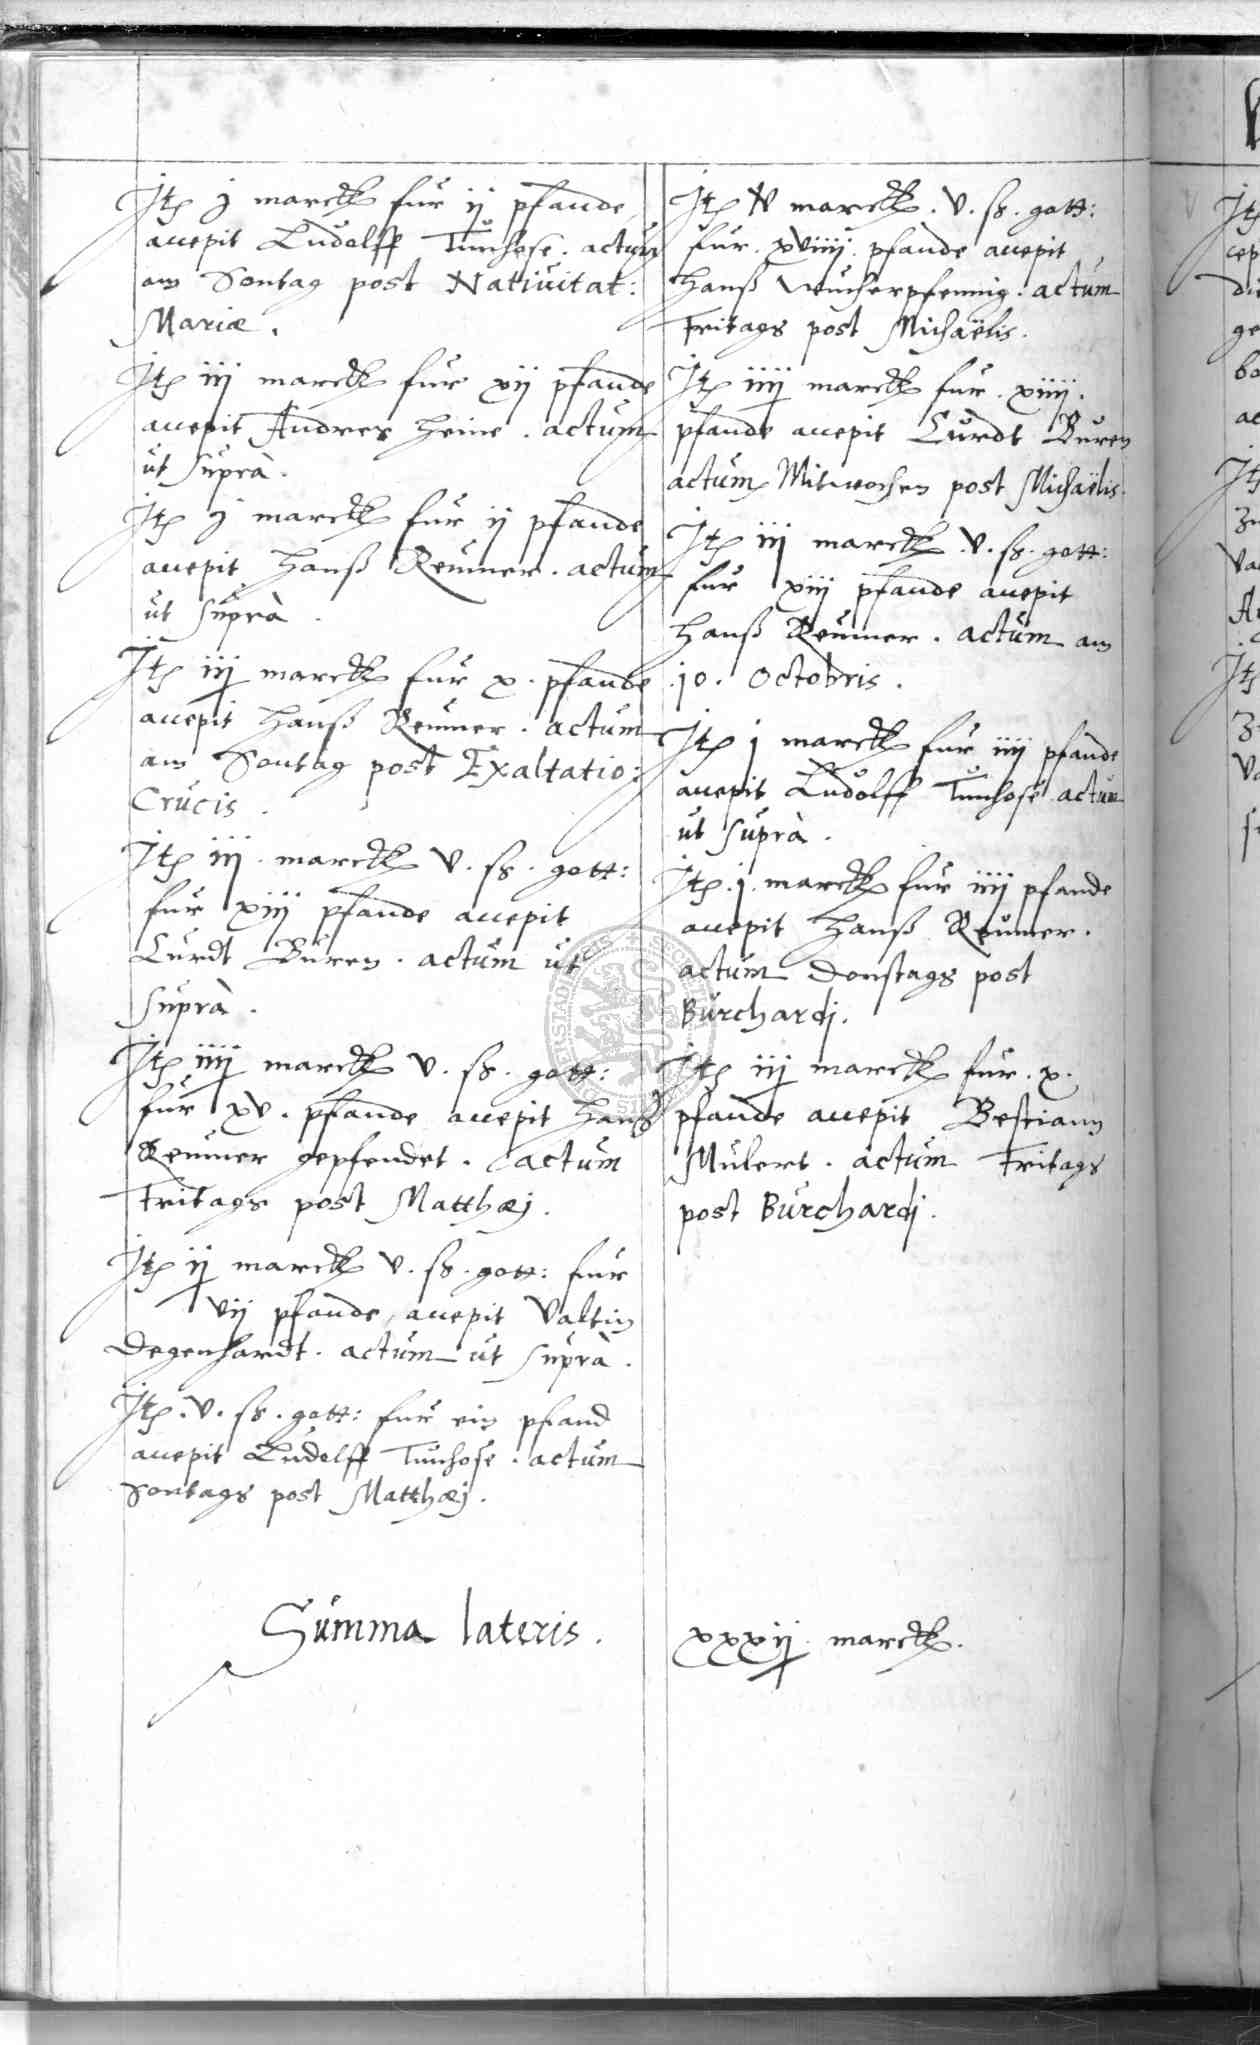 Itē j marck fur ij pfande
accepit Ludolff Tunhose. actum
am Sontag post Nativitat:
Mariæ.
Itē iij marck fur xij pfande
accepit Andres Heine. actum
ut suprà.
Itē j marck fur ij pfande
accepit Hanß Reumer. actum
ut suprà.
Itē iij marck fur x. pfande
accepit Hanß Reumer. actum
am Sontag post Exaltatio:
Crucis.
Itē iij. marck v. ß. gott:
fur xiij pfande accepit
Curdt Buren. actum ut
suprà.
Itē iiij marck v. ß. gott:
fur xv. pfande accepit Hanß
Reumer gepfendet. actum
Fritags post Matthæj.
Itē ij marck v. ß. gott: fur
vij pfande, accepit Valtin
Degenhardt. actum ut suprà.
Itē. v. ß. gott: fur ein pfand
accepit Ludolff Tunhose. actum
Sontags post Matthæj.
Itē marck. v. ß. gott:
fur. xviiij. pfande accepit
Hanß Wucherpfennig. actum
Fritags post Michaëlis.
Itē iiij marck fur. xiiij.
pfande accepit Curdt Buren
actum Mitwochen post Michaëlis.
Itē iij marck. v. ß. gott:
fur xiij pfande accepit
Hanß Reumer. actum am
10. Octobris.
Itē j marck fur iiij pfande
accepit Ludolff Tunhose actum
ut suprà.
Itē. j. marck fur iiij pfande
accepit Hanß Reumer.
actum Donstags post
Burchardj.
Itē iij marck fur. x.
pfande accepit Bestiann
Mulert. actum Fritags
post Burchardj.
Summa lateris. xxxij. marck.